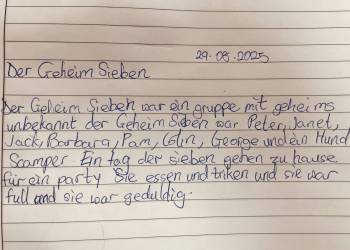 29.08.2025
Der Geheim Sieben
Der Geheim Sieben war ein gruppe mit geheims
unbekannt der Geheim Sieben war Peter, Janet,
Jack, Barbara, Pam, Colin, George und ein Hund
Scamper Ein tag der sieben gehen zu hause
für ein party Sie essen und triken und sie war
full and sie war geduldig.